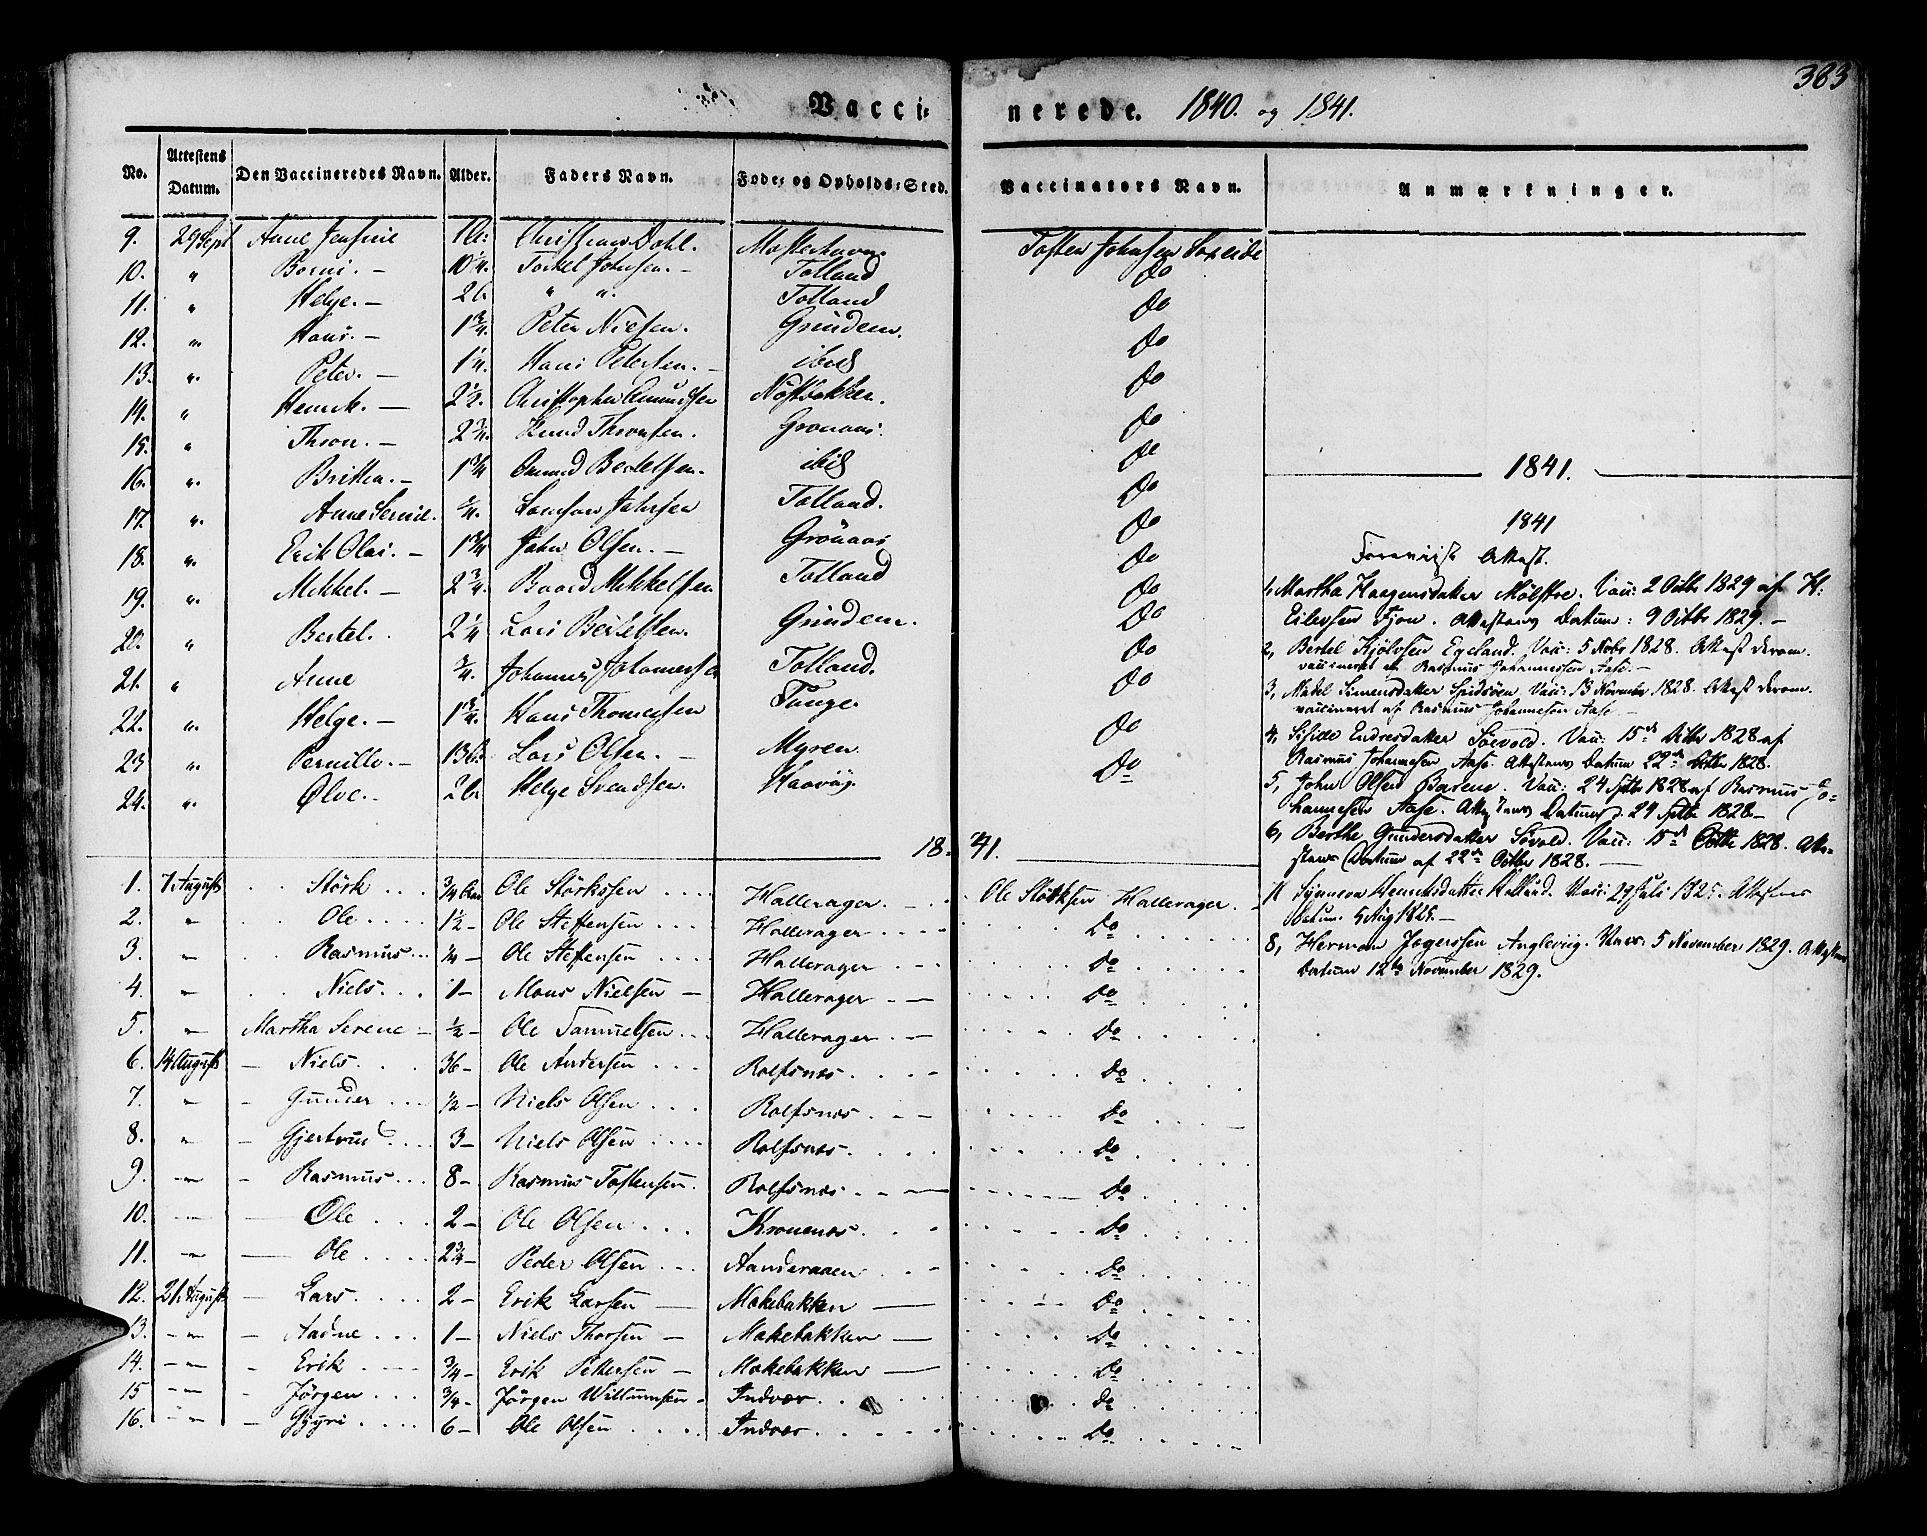 383
Vacci-nerede. 1840. og 1841.
No. Attestens Datum. Den Vaccineredes Navn. Alder. Faders Navn. Føde- og Opholds-Sted. Vaccinators Navn. Anmærkninger.
9. 29 Sept Anne Christian Dahl. Mosterhavn. Tosten Johnsen
10. " 10 1/4. Torkel Johnsen. Tolland Do
11. " Helge. 26 " " Tolland Do
12. " Hans. 1 3/4. Peter Nielsen. Grindem. Do
13. " Peter. 1 1/4. Hans Petersen. ibid Do
14. " Henrik. 2 1/2. Christopher Amundsen Nøstbakken. Do
15. " Thron. 2 3/4. Knud Thronsen. Gronaas. Do
16. " Britha. 1 3/4 Amund Bertelsen. ibid Do
17. " Anne Serine. 3/4. Johnsen Tolland. Do
18. " Erik Olai. 1 3/4 John Olsen. Grönaas Do
19. " Mikkel. 2 3/4. Baard Mikkelsen Tolland Do
20. " Bertel. 2 1/4 Lars Bertelsen. Grindem. Do
21. " Anne 3/4. Johannes Johannessen Tolland. Do
22. " Helge. 1 3/4. Hans Thomesen Do
23 " Pernille. Lars Olsen. Myren Do
24. " Ølve. Helge Svendsen. Do
1841.
1. 7 August Störk 3/4 Aar Ole Störksen Hallerager. Ole Störksen Hallerager.
2. " Ole 1 1/2 Ole Steffensen Hallerager Do
3. " Rasmus 1/4 Ole Steffensen Hallerager Do
4. " Niels 1 Mons Nielsen Hallerager Do
5. " Martha Serene 1/2 Ole Samuelsen Hallerager Do
6. 14 August Niels 36 Ole Andersen Rolfsnes Do
7. " Gunder 1/2 Niels Olsen Rolfsnes Do
8. " Gjertrud 3 Niels Olsen Rolfsnes Do
9. " Rasmus 8 Rasmus Tostensen. Rolfsnes Do
10. " Ole 2 Ole Olsen Kronenes Do
11. " Ole 2 3/4 Peder Olsen Aanderaaen Do
12. 21. August Lars 2 Erik Larsen Mokebakken Do
13. " Aadne 1 Niels Thorsen Mokebakken Do
14. " Erik 3/4 Erik Pettersen Mokebakken Do
15 " Jörgen 3/4 Jörgen Willumsen Indvær Do
16. " Gyri 6 Ole Olsen Indvær Do
1841.
1841
Forevist Attest.
1, Martha Haagensdatter Mölstre. Vacc: 2 Octbr 1829 af H:
Eilevsen Fjon. Attestens Datum: 9 Octbr 1829.
2, Bertel Kjölvsen Egeland. Vacc: 5 Novbr 1828. Attest derom.
vaccineret af Rasmus Johannessen Aase.
3, Madel Simensdatter Spidsöen. Vacc: 13 November 1828. Attest derom.
vaccineret af Rasmus Johannesen Aase
4, Endresdatter Söevold. Vacc: 15de Octbr 1828 af
Rasmus Johannesen Aase. Attestens Datum 22de Octbr 1828.
5, John Olsen Vacc: 24 Septbr 1828 af Rasmus Jo-
hannesen Aase. Attestens Datum d. 24 Septbr 1828.
6, Berthe Gundersdatter Sövold. Vacc: 15de Octbr 1828. Atte-
stens Datum af 22de Octbr 1828.
Henriksdatter Vacc: 29 Juli 1825. Attestens
Datum. 5 Aug 1825.
8, Herman Jegersen Angleviig. Vacc: 5 November 1829. Attestens
Datum 12te November 1829.